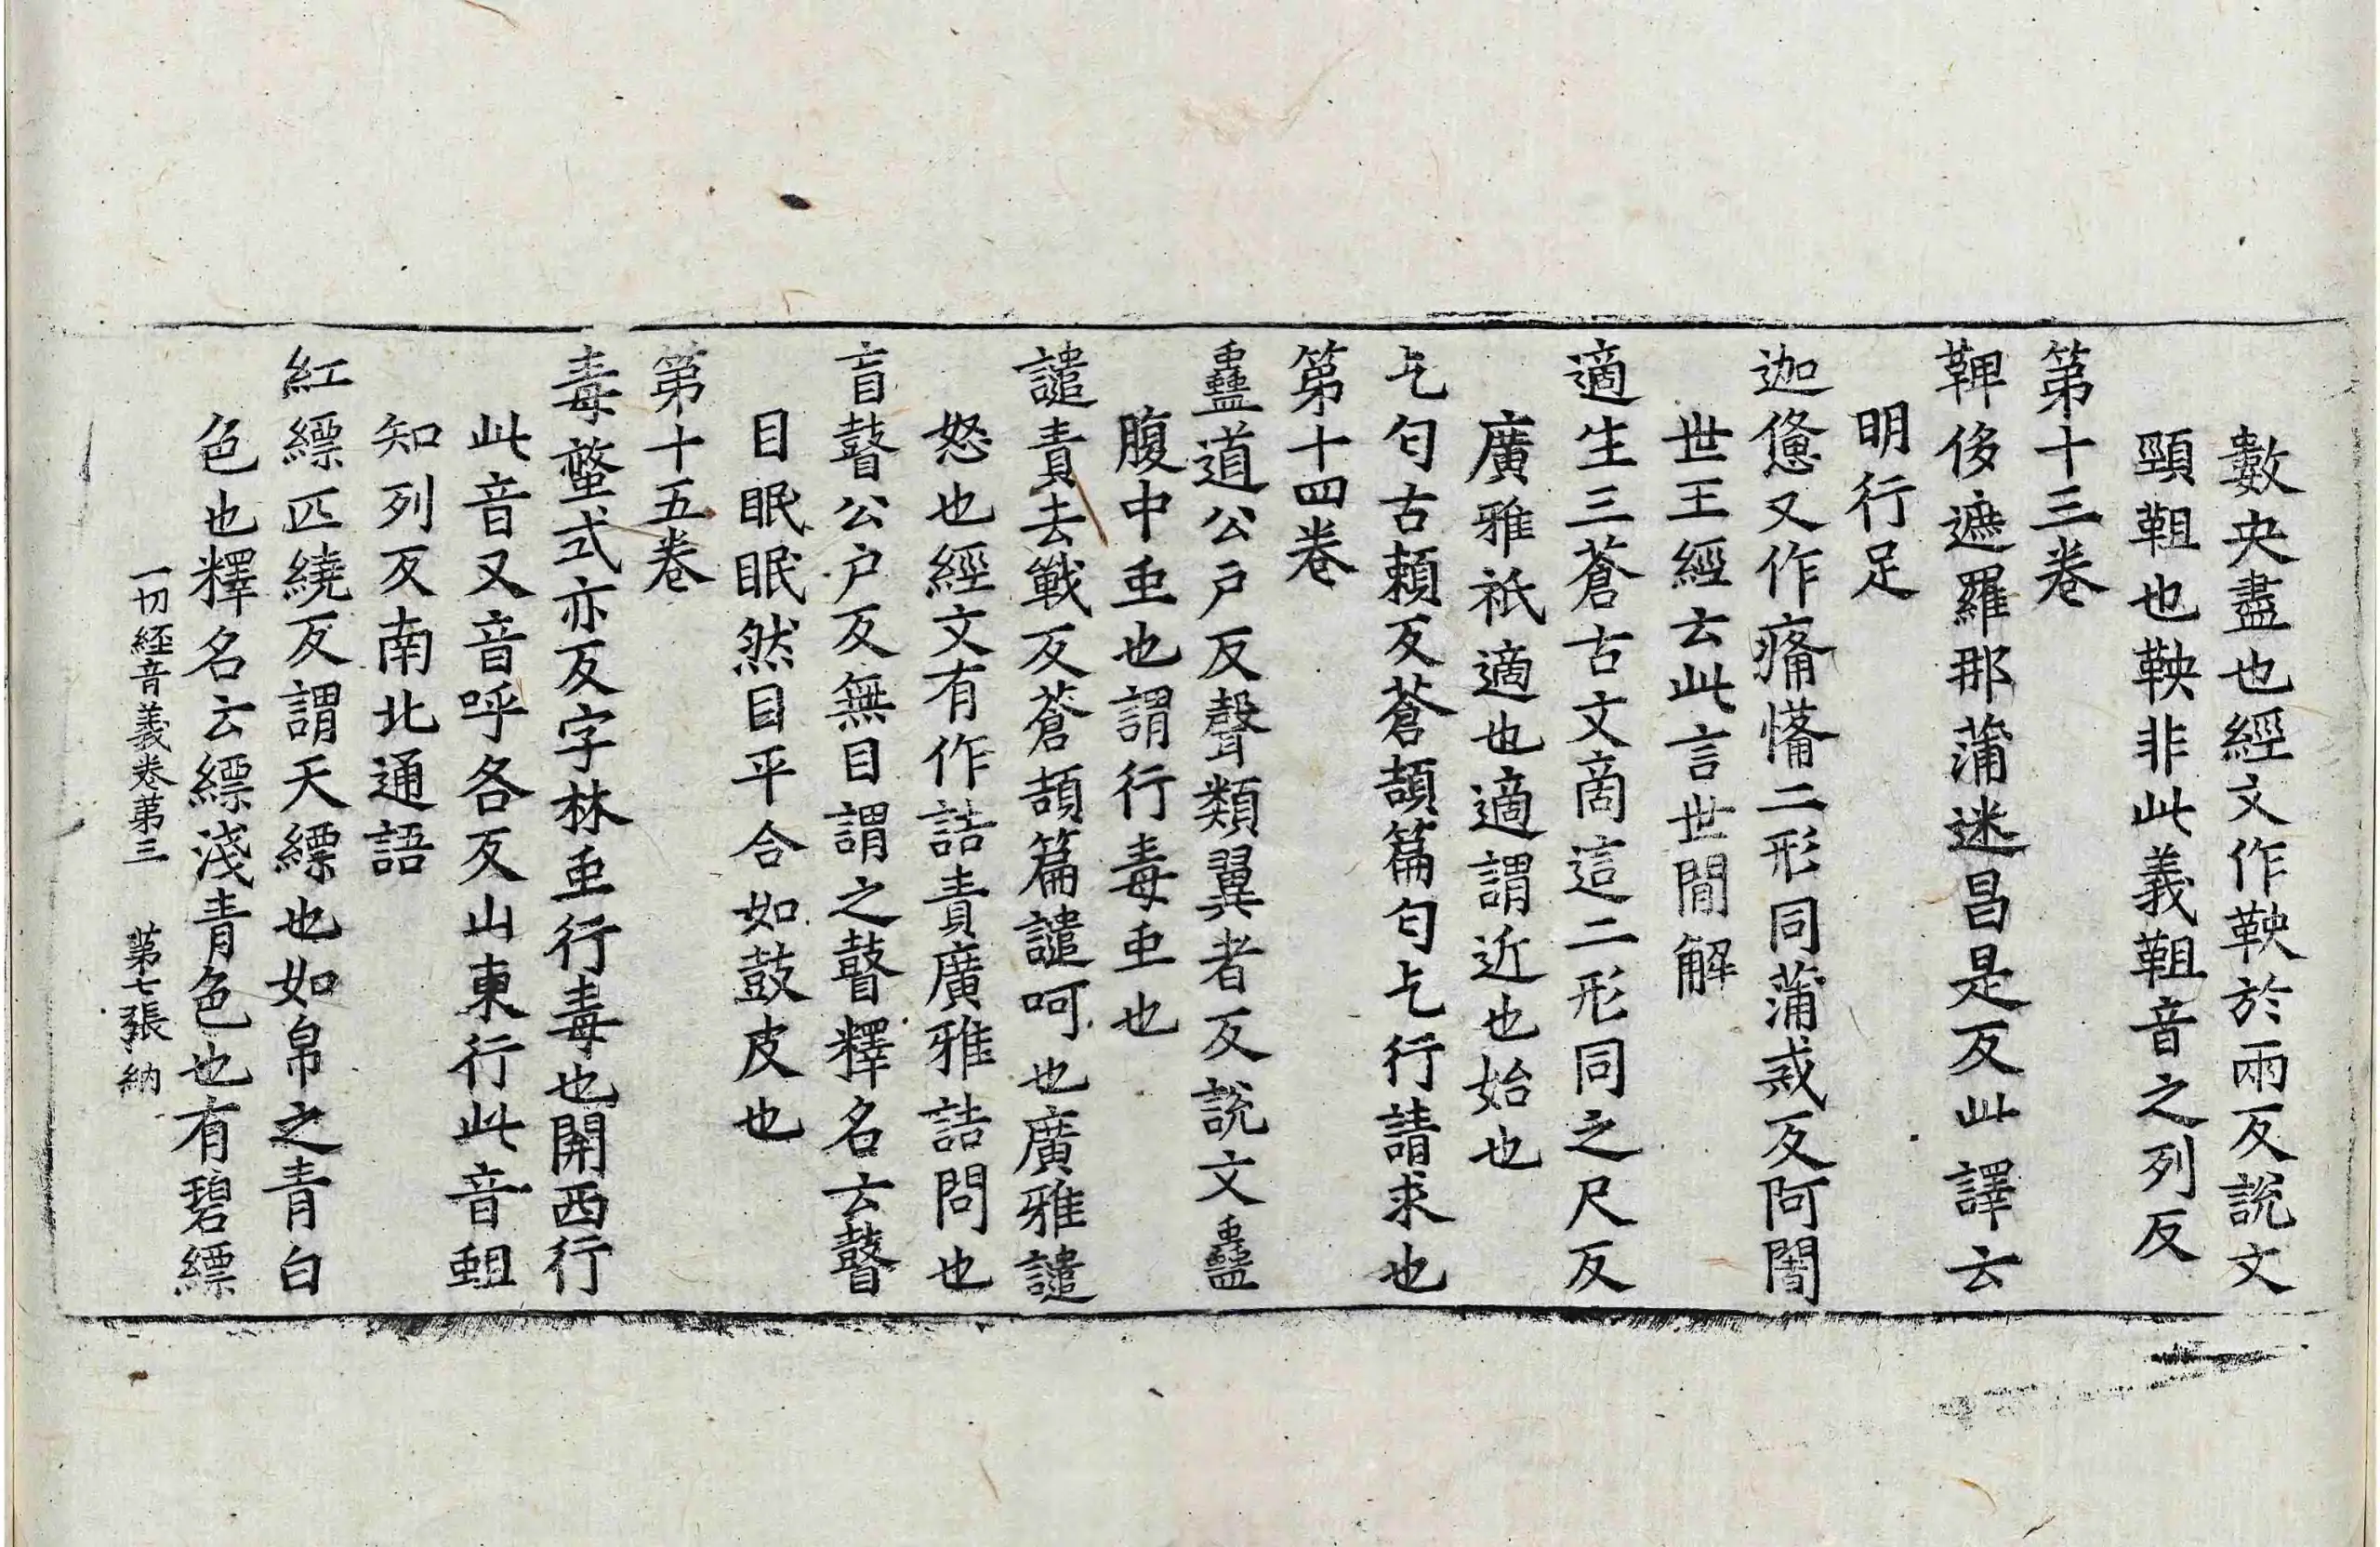 數央盡也經文作鞅於兩反說文
頸靼也鞅非此義靼音之列反
第十三卷
鞞侈遮羅那蒲迷昌是反此譯云
明行足
迦憊又作㾱㣁二形同蒲戒反阿闍
世王經云此言世間解
適生三蒼古文啇這二形同之尺反
廣雅祇適也適謂近也始也
乞匄古賴反蒼頡篇匄乞行請求也
第十四卷
蠱道公戶反聲類翼者反說文蠱
腹中虫也謂行毒虫也
譴責去戰反蒼頡篇譴呵也廣雅譴
怒也經文有作詰責廣雅詰問也
盲瞽公戶反無目謂之瞽釋名云瞽
目眠眠然目平合如鼓皮也
第十五卷
毒螫式亦反字林虫行毒也關西行
此音又音呼各反山東行此音蛆
知列反南北通語
紅縹匹繞反謂天縹也如帛之青白
色也釋名云縹淺青色也有碧縹
一切經音義卷第三 第七張 納